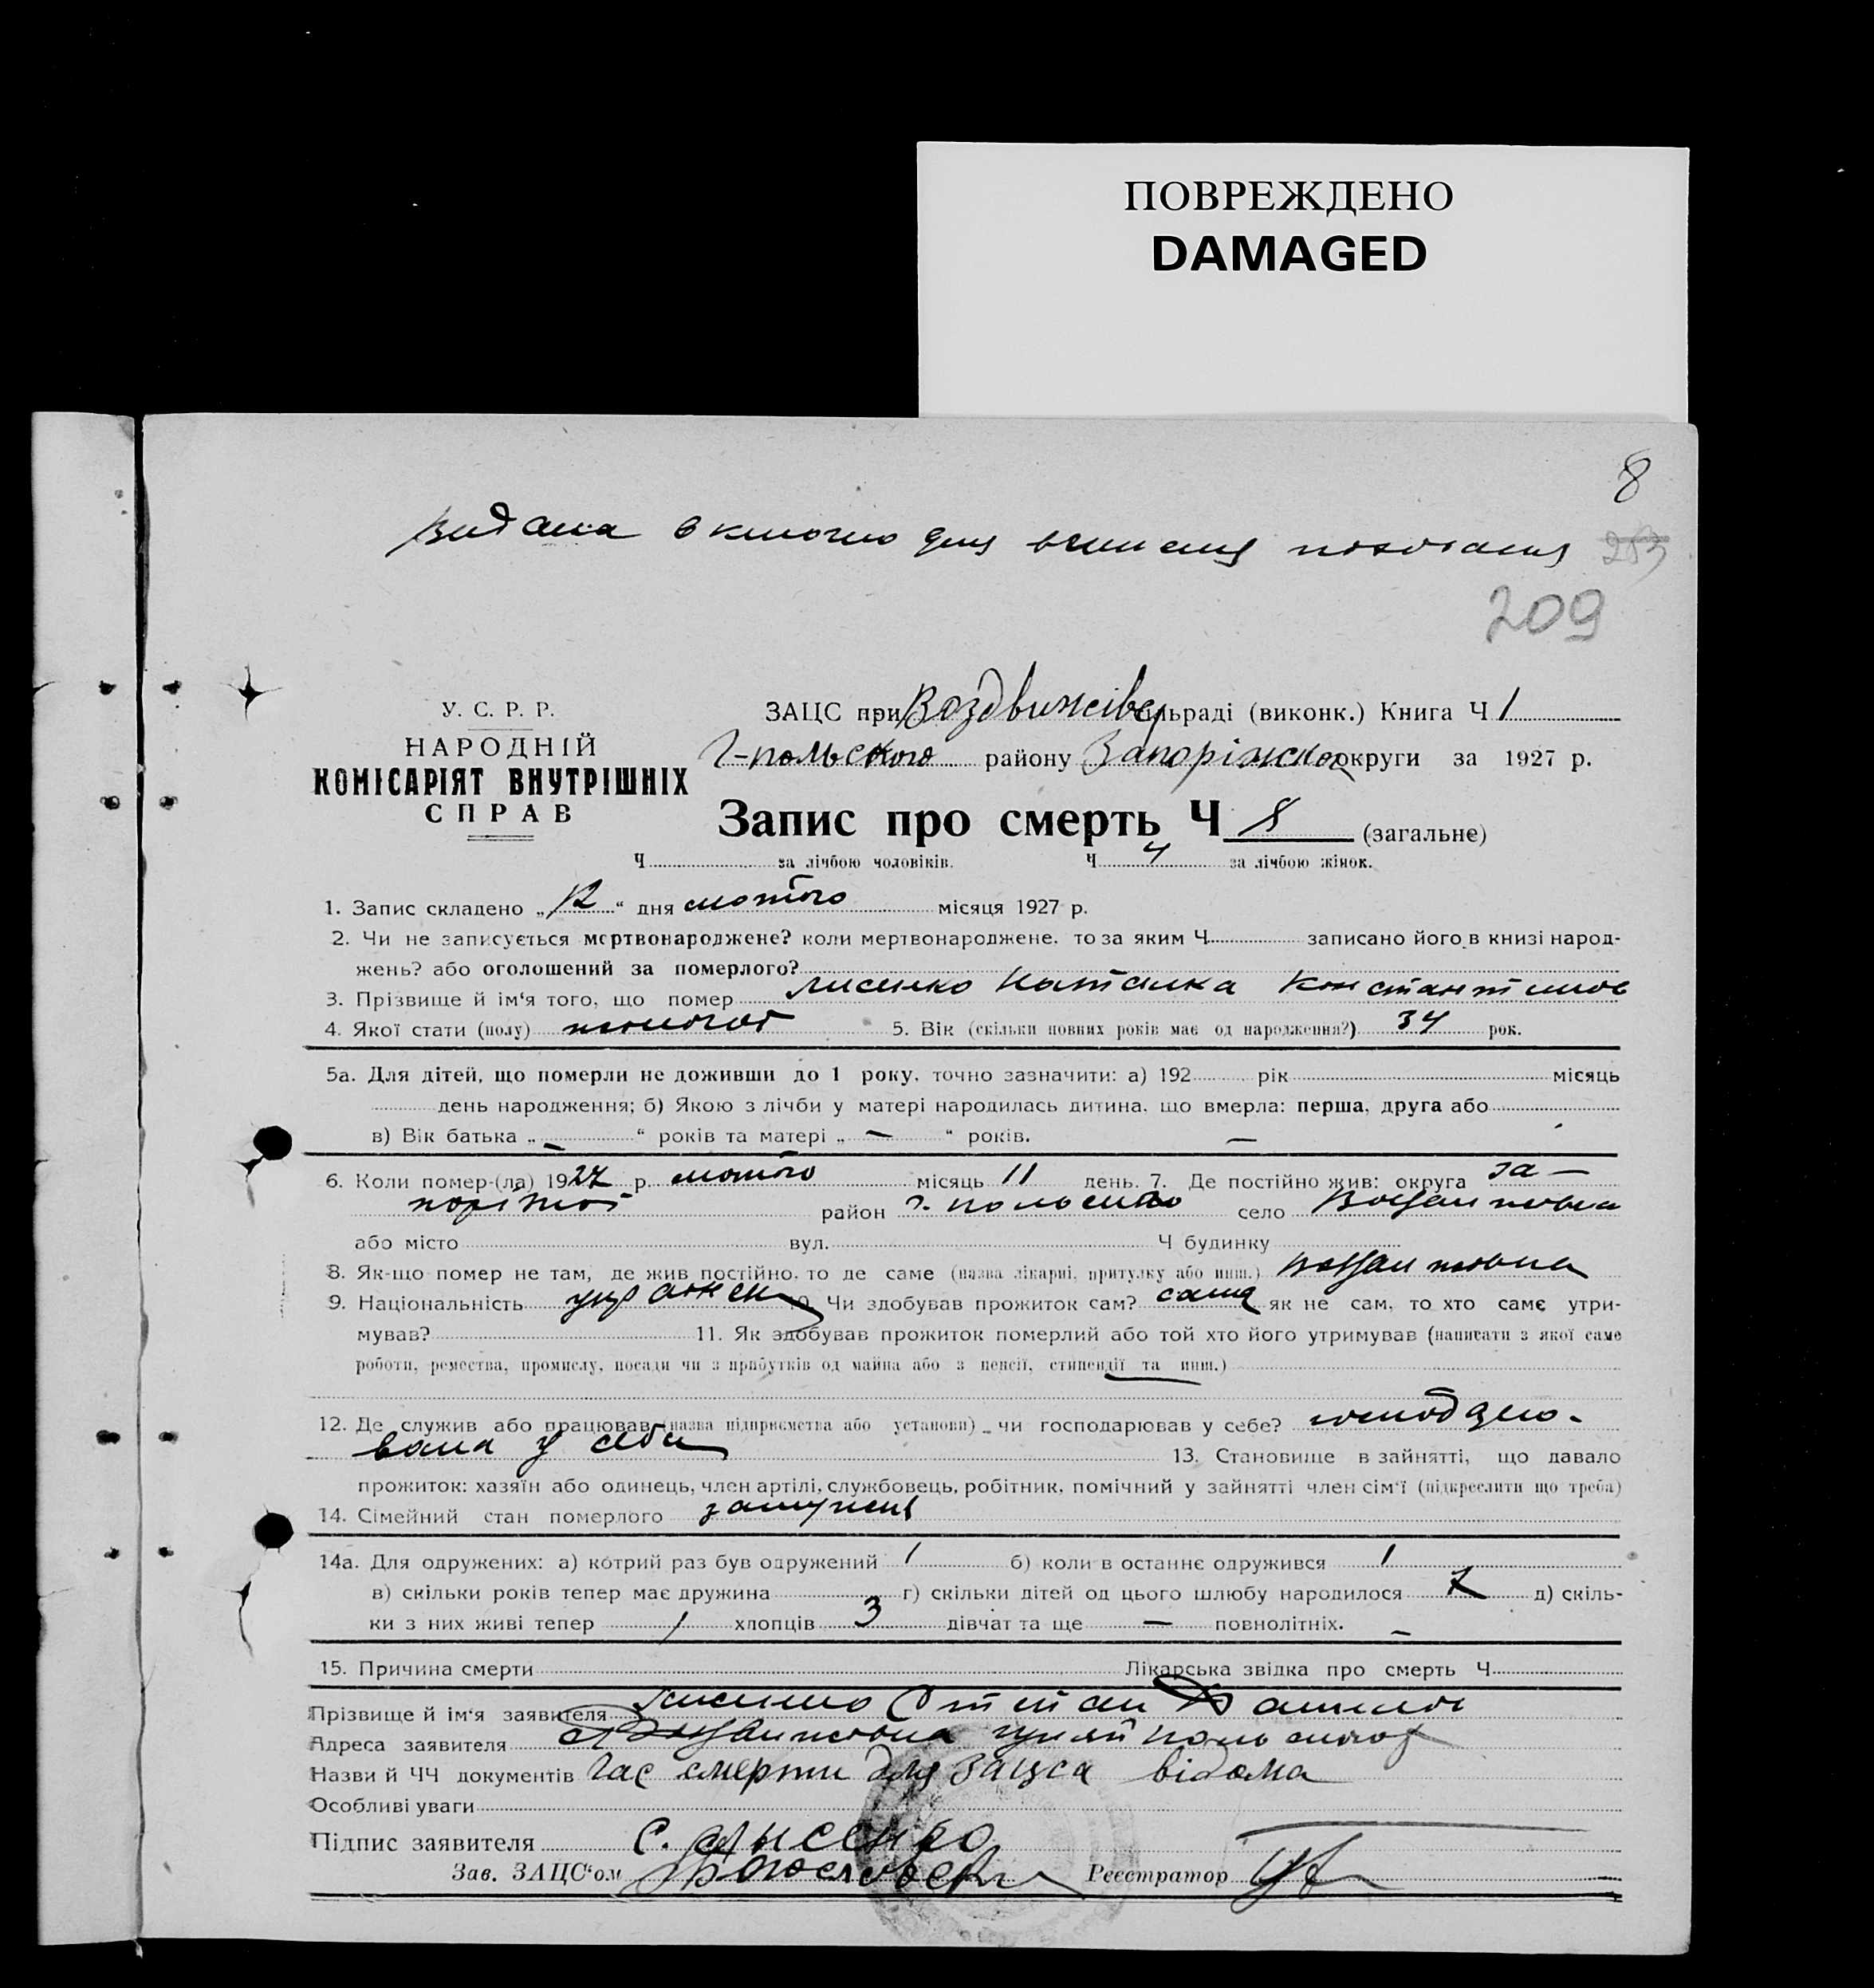 ПОВРЕЖДЕНО
DAMAGED
8
Видана для
209
У. С. Р. Р.
НАРОДНІЙ
КОМІСАРІЯТ ВНУТРІШНІХ
СПРАВ
ЗАЦС при Воздвижівц сільраді (виконк.) Книга Ч 1
Г-польского району Запоріжско округи за 1927 р.
Запис про смерть Ч 8 (загальне)
Ч за лічбою чоловіків. Ч 4 за лічбою жінок.
1. Запис складено „12“ дня лютого місяця 1927 р.
2. Чи не записується мертвонароджене? коли мертвонароджене. то за яким Ч записано його в книзі народ-
жень? або оголошений за померлого?
3. Прізвище й ім‘я того, що помер Лисенко Наталка Константинов
4. Якої стати (полу) жіночої 5. Вік (скільки повних років має од народження?) 34 рок.
5а. Для дітей, що померли не доживши до 1 року, точно зазначити: а) 192 рік місяць
день народження; б) Якою з лічби у матері народилась дитина, що вмерла: перша, друга або
в) Вік батька „ — “ років та матері „ — “ років. —
6. Коли помер-(ла) 1927 р. лютого місяць 11 день. 7. Де постійно жив: округа За-
поріжої район Г. польсько село
або місто вул. Ч будинку
8. Як-що помер не там, де жив постійно, то де саме (назва лікарні, притулку або инш.)
9. Національність 10. Чи здобував прожиток сам? сама як не сам, то хто саме утри-
мував? 11. Як здобував прожиток померлий або той хто його утримував (написати з якої саме
роботи, ремества, промислу, посади чи з прибутків од майна або з пенсії, стипендії та инш.)
12. Де служив або працював (назва підприємства або установи) чи господарював у себе?
вала у себе 13. Становище в зайнятті, що давало
прожиток: хазяїн або одинець, член артілі, службовець, робітник, помічний у зайнятті член сім‘ї (підкреслити що треба)
14. Сімейний стан померлого замужня
14а. Для одружених: а) котрий раз був одружений 1 б) коли в останнє одружився 1
в) скільки років тепер має дружина г) скільки дітей од цього шлюбу народилося д) скіль-
ки з них живі тепер 1 хлопців 3 дівчат та ще — повнолітніх. —
15. Причина смерти Лікарська звідка про смерть Ч
Прізвище й ім‘я заявителя Лисенко Степан
Адреса заявителя
Назви й ЧЧ документів Час смерти для Зацса відома
Особливі уваги
Підпис заявителя С. Лысенко
Зав. ЗАЦС‘ом Реєстратор